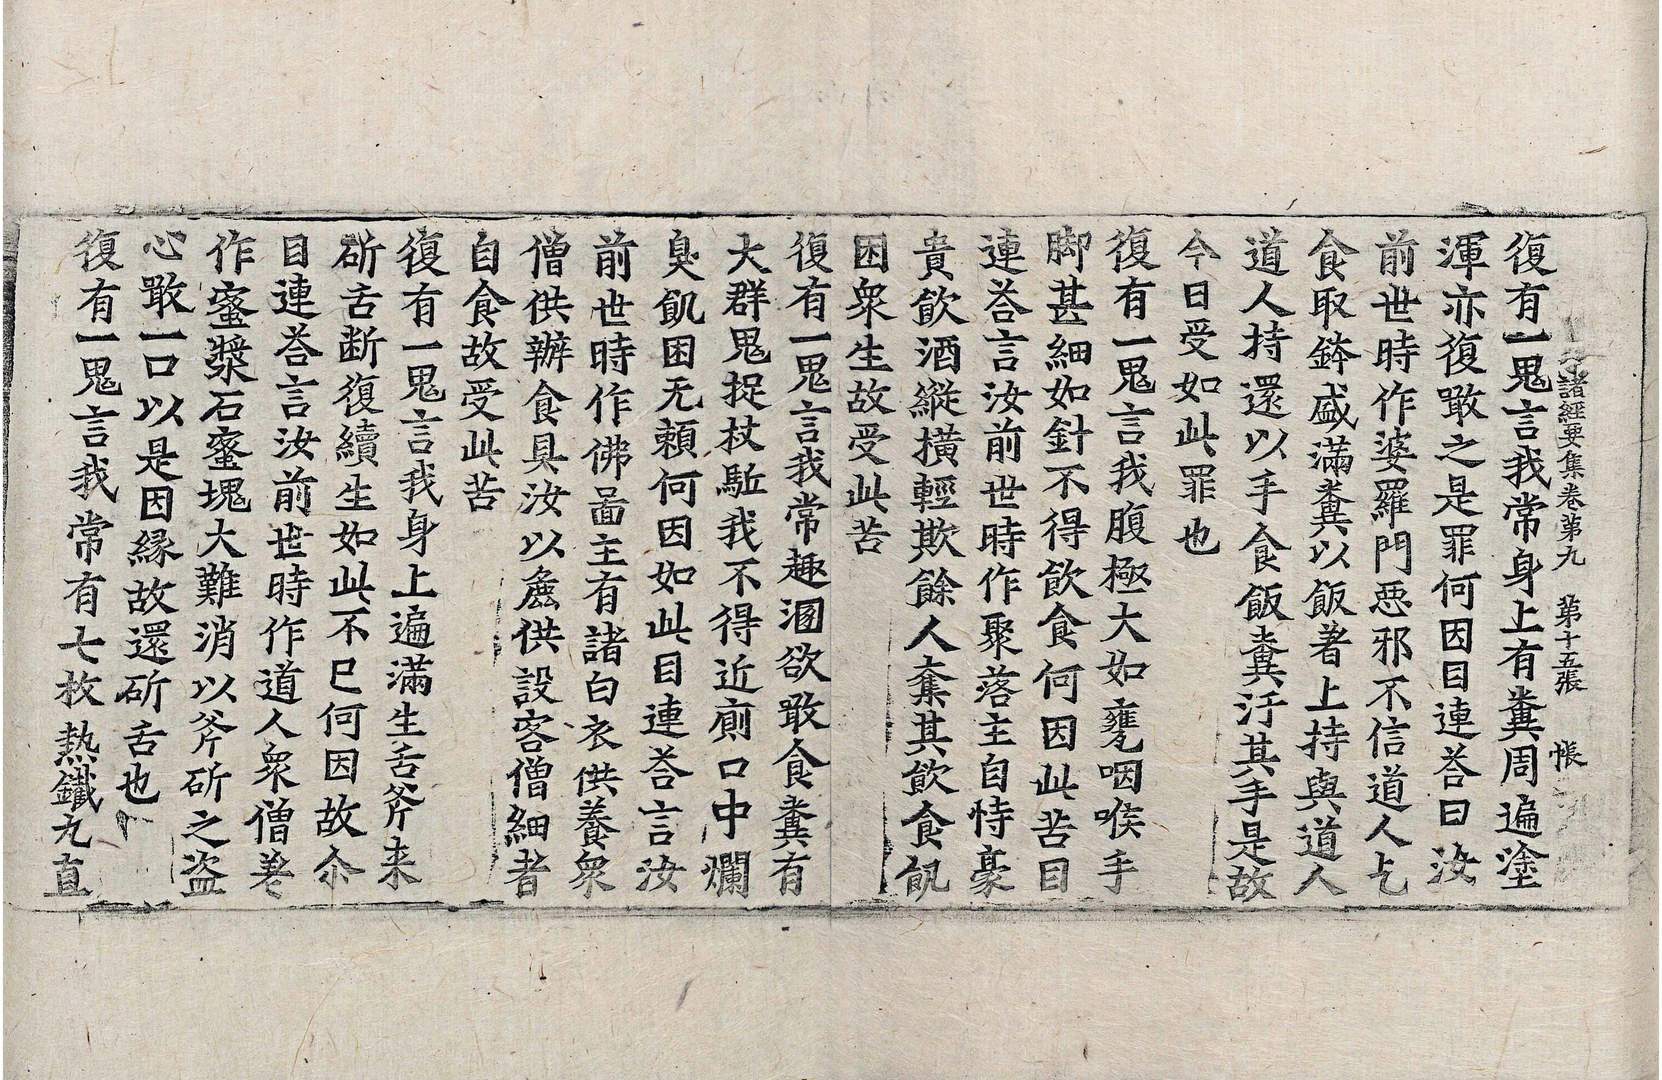 諸經要集卷第九　第十五張　帳
復有一鬼言我常身上有糞周遍塗
渾亦復噉之是罪何因目連荅曰汝
前世時作婆羅門惡邪不信道人乞
食取鉢盛滿糞以飯著上持與道人
道人持還以手食飯糞汙其手是故
今日受如此罪也
復有一鬼言我腹極大如甕咽喉手
脚甚細如針不得飲食何因此苦目
連荅言汝前世時作聚落主自恃豪
貴飲酒縱橫輕欺餘人奪其飲食飢
困衆生故受此苦
復有一鬼言我常趣溷欲噉食糞有
大群鬼捉杖駈我不得近廁口中爛
臭飢困无賴何因如此目連荅言汝
前世時作佛啚主有諸白衣供養衆
僧供辦食具汝以麁供設客僧細者
自食故受此苦
復有一鬼言我身上遍滿生舌斧来
斫舌断復續生如此不已何因故尒
目連荅言汝前世時作道人衆僧差
作蜜漿石蜜塊大難消以斧斫之盜
心噉一口以是因緣故還斫舌也
復有一鬼言我常有七枚熱鐵丸直